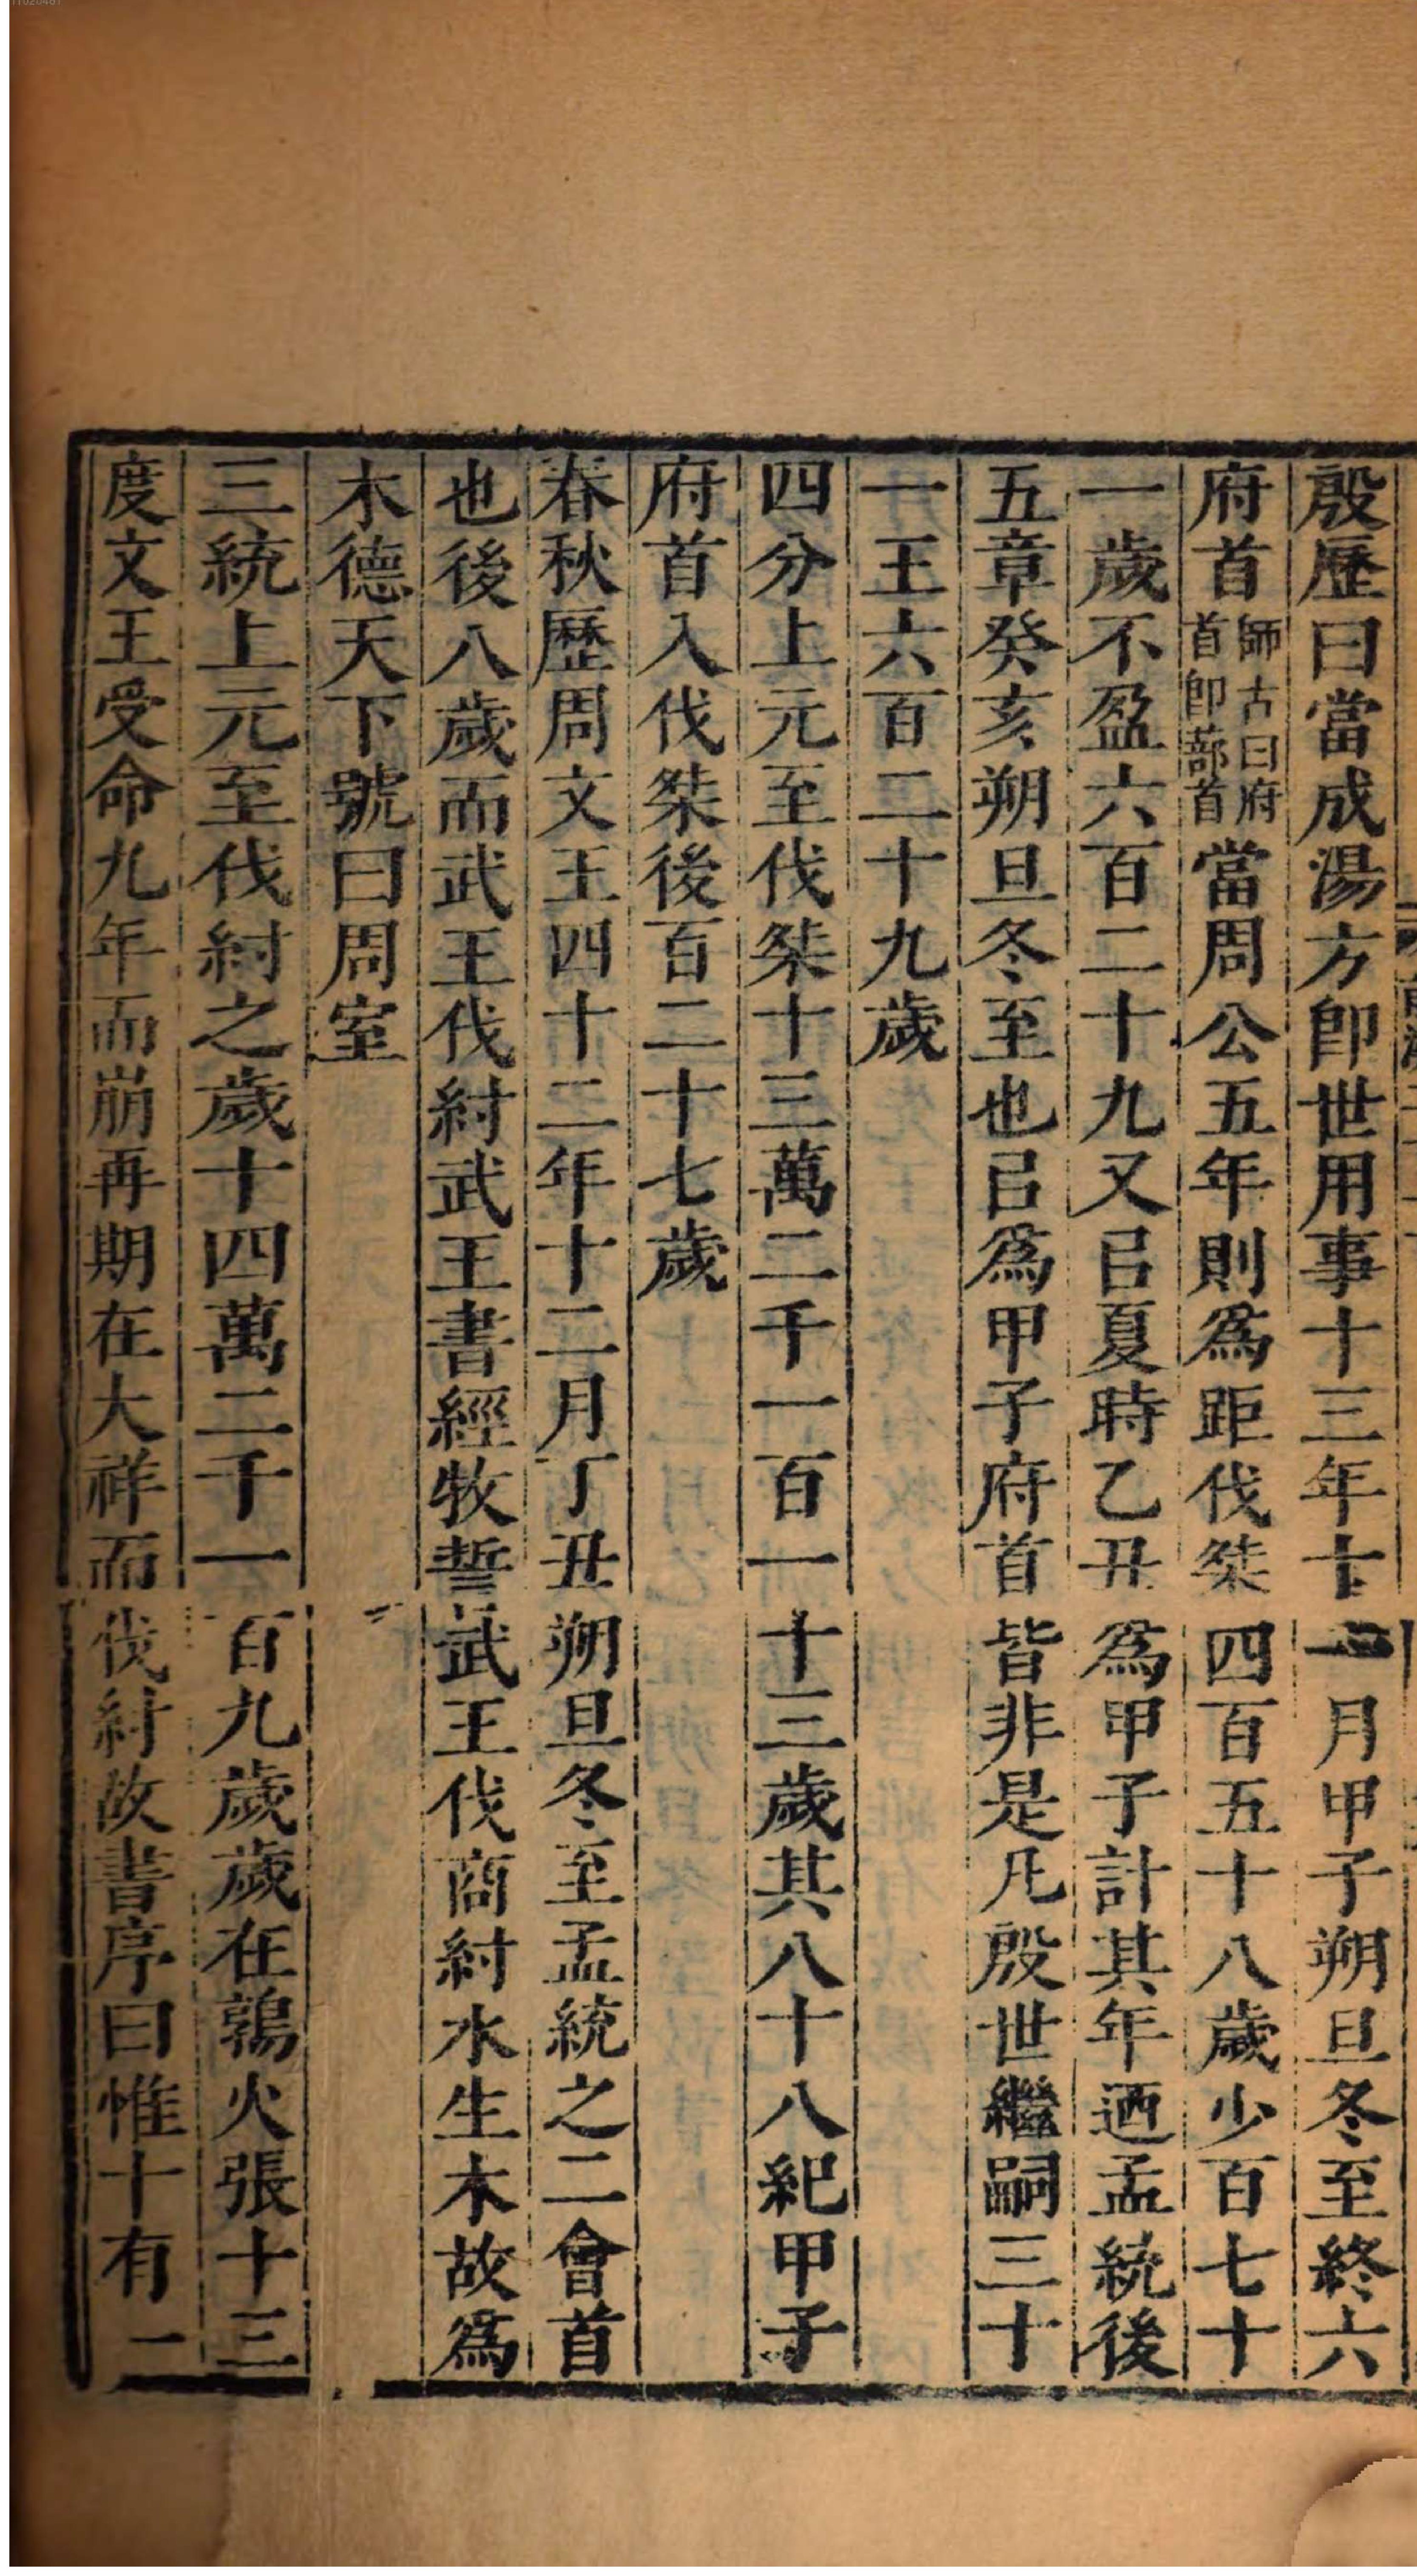 殷歷曰當成湯方卽世用事十三年十一月甲子朔旦冬至終六
府首師古曰府首卽蔀首當周公五年則爲距伐桀四百五十八歲少百七十
一歲不盈六百二十九又㠯夏時乙丑爲甲子計其年迺孟統後
五章癸亥朔旦冬至也㠯爲甲子府首皆非是凡殷世繼嗣三十
一王六百二十九歲
四分上元至伐桀十三萬二千一百一十三歲其八十八紀甲子
府首入伐桀後百二十七歲
春秋歷周文王四十二年十二月丁丑朔旦冬至孟統之二會首
也後八歲而武王伐紂武王書經牧誓武王伐商紂水生木故爲
木德天下號曰周室
三統上元至伐紂之歲十四萬二千一百九歲歲在鶉火張十三
度文王受命九年而崩再期在大祥而伐紂故書序曰惟十有一